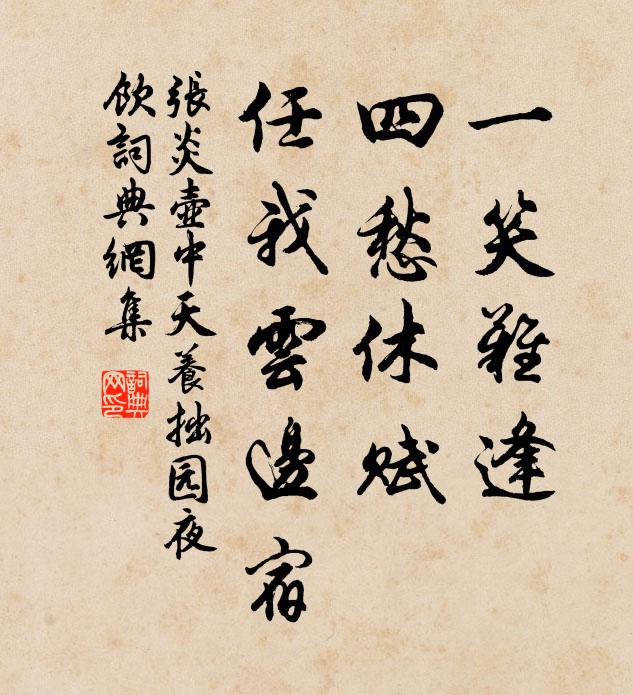 一笑難逢
四愁休賦
任我雲邊宿
張炎壺中天養拙园夜
飲詞典網集
詞典網印